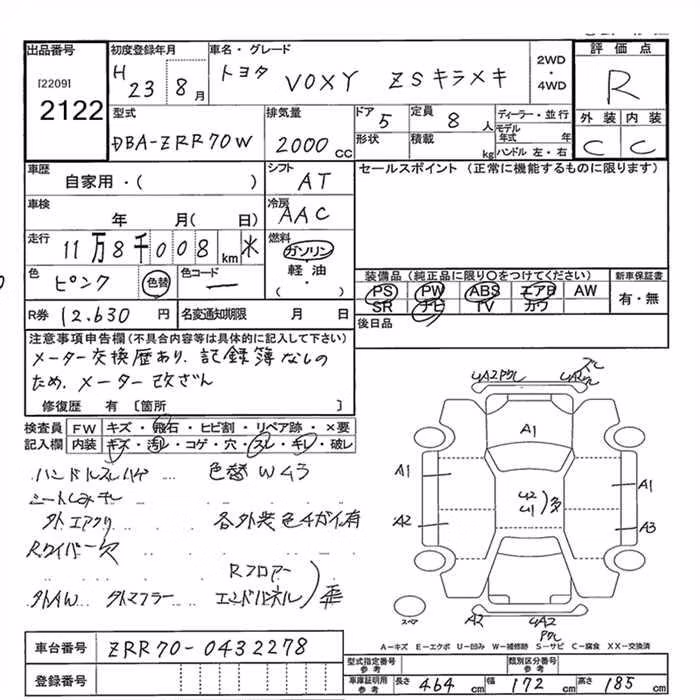 出品番号 初度登録年月 車名・グレード 2WD・4WD 評価点
[2209]
2122
H 23 8月
トヨタ VOXY ZSキラメキ
R
外装 内装
C C
型式 排気量 ドア 定員 ディーラー・並行
DBA-ZRR70W 2000cc 5 8人
モデル年式 年
形状 積載 kg ハンドル 左・右
車歴 自家用・( )
シフト AT
セールスポイント (正常に機能するものに限ります)
車検 年 月( 日)
冷房 AAC
走行 11万8千008km ※
燃料 ガソリン 軽油 ( ・ )
色 ピンク 色替 色コードー
装備品 (純正品に限り○をつけてください) 新車保証書
PS PW ABS エアB AW 有・無
SR ナビ TV カワ
R券 12.630円 名変通知期限 月 日
後日品
注意事項申告欄(不具合内容等は具体的に記入して下さい)
メーター交換歴あり、記録簿なしの
ため、メーター改ざん
修復歴 有 [箇所 ]
検査員 FW キズ・飛石・ヒビ割・リペア跡・×要
記入欄 内装 キズ・汚レ・コゲ・穴・スレ・キレ・破レ
ハンドルスレハゲ 色替Wムラ
シートしみキレ
外エアクリ 各外装色ムガイ有
Rワイパー欠
Rフロアー
外AW 外マフラー エンドパネル
A2 A1 A1 A1 A2 A3
U2
U1
A2 U A2
スペア
A-キズ E-エクボ U-凹み W-補修跡 S-サビ C-腐食 XX-交換済
車台番号 ZRR70-0432278
登録番号
型式指定番号 参考 類別区分番号 参考
車庫証明用 参考 長さ 464cm 幅 172cm 高さ 185cm